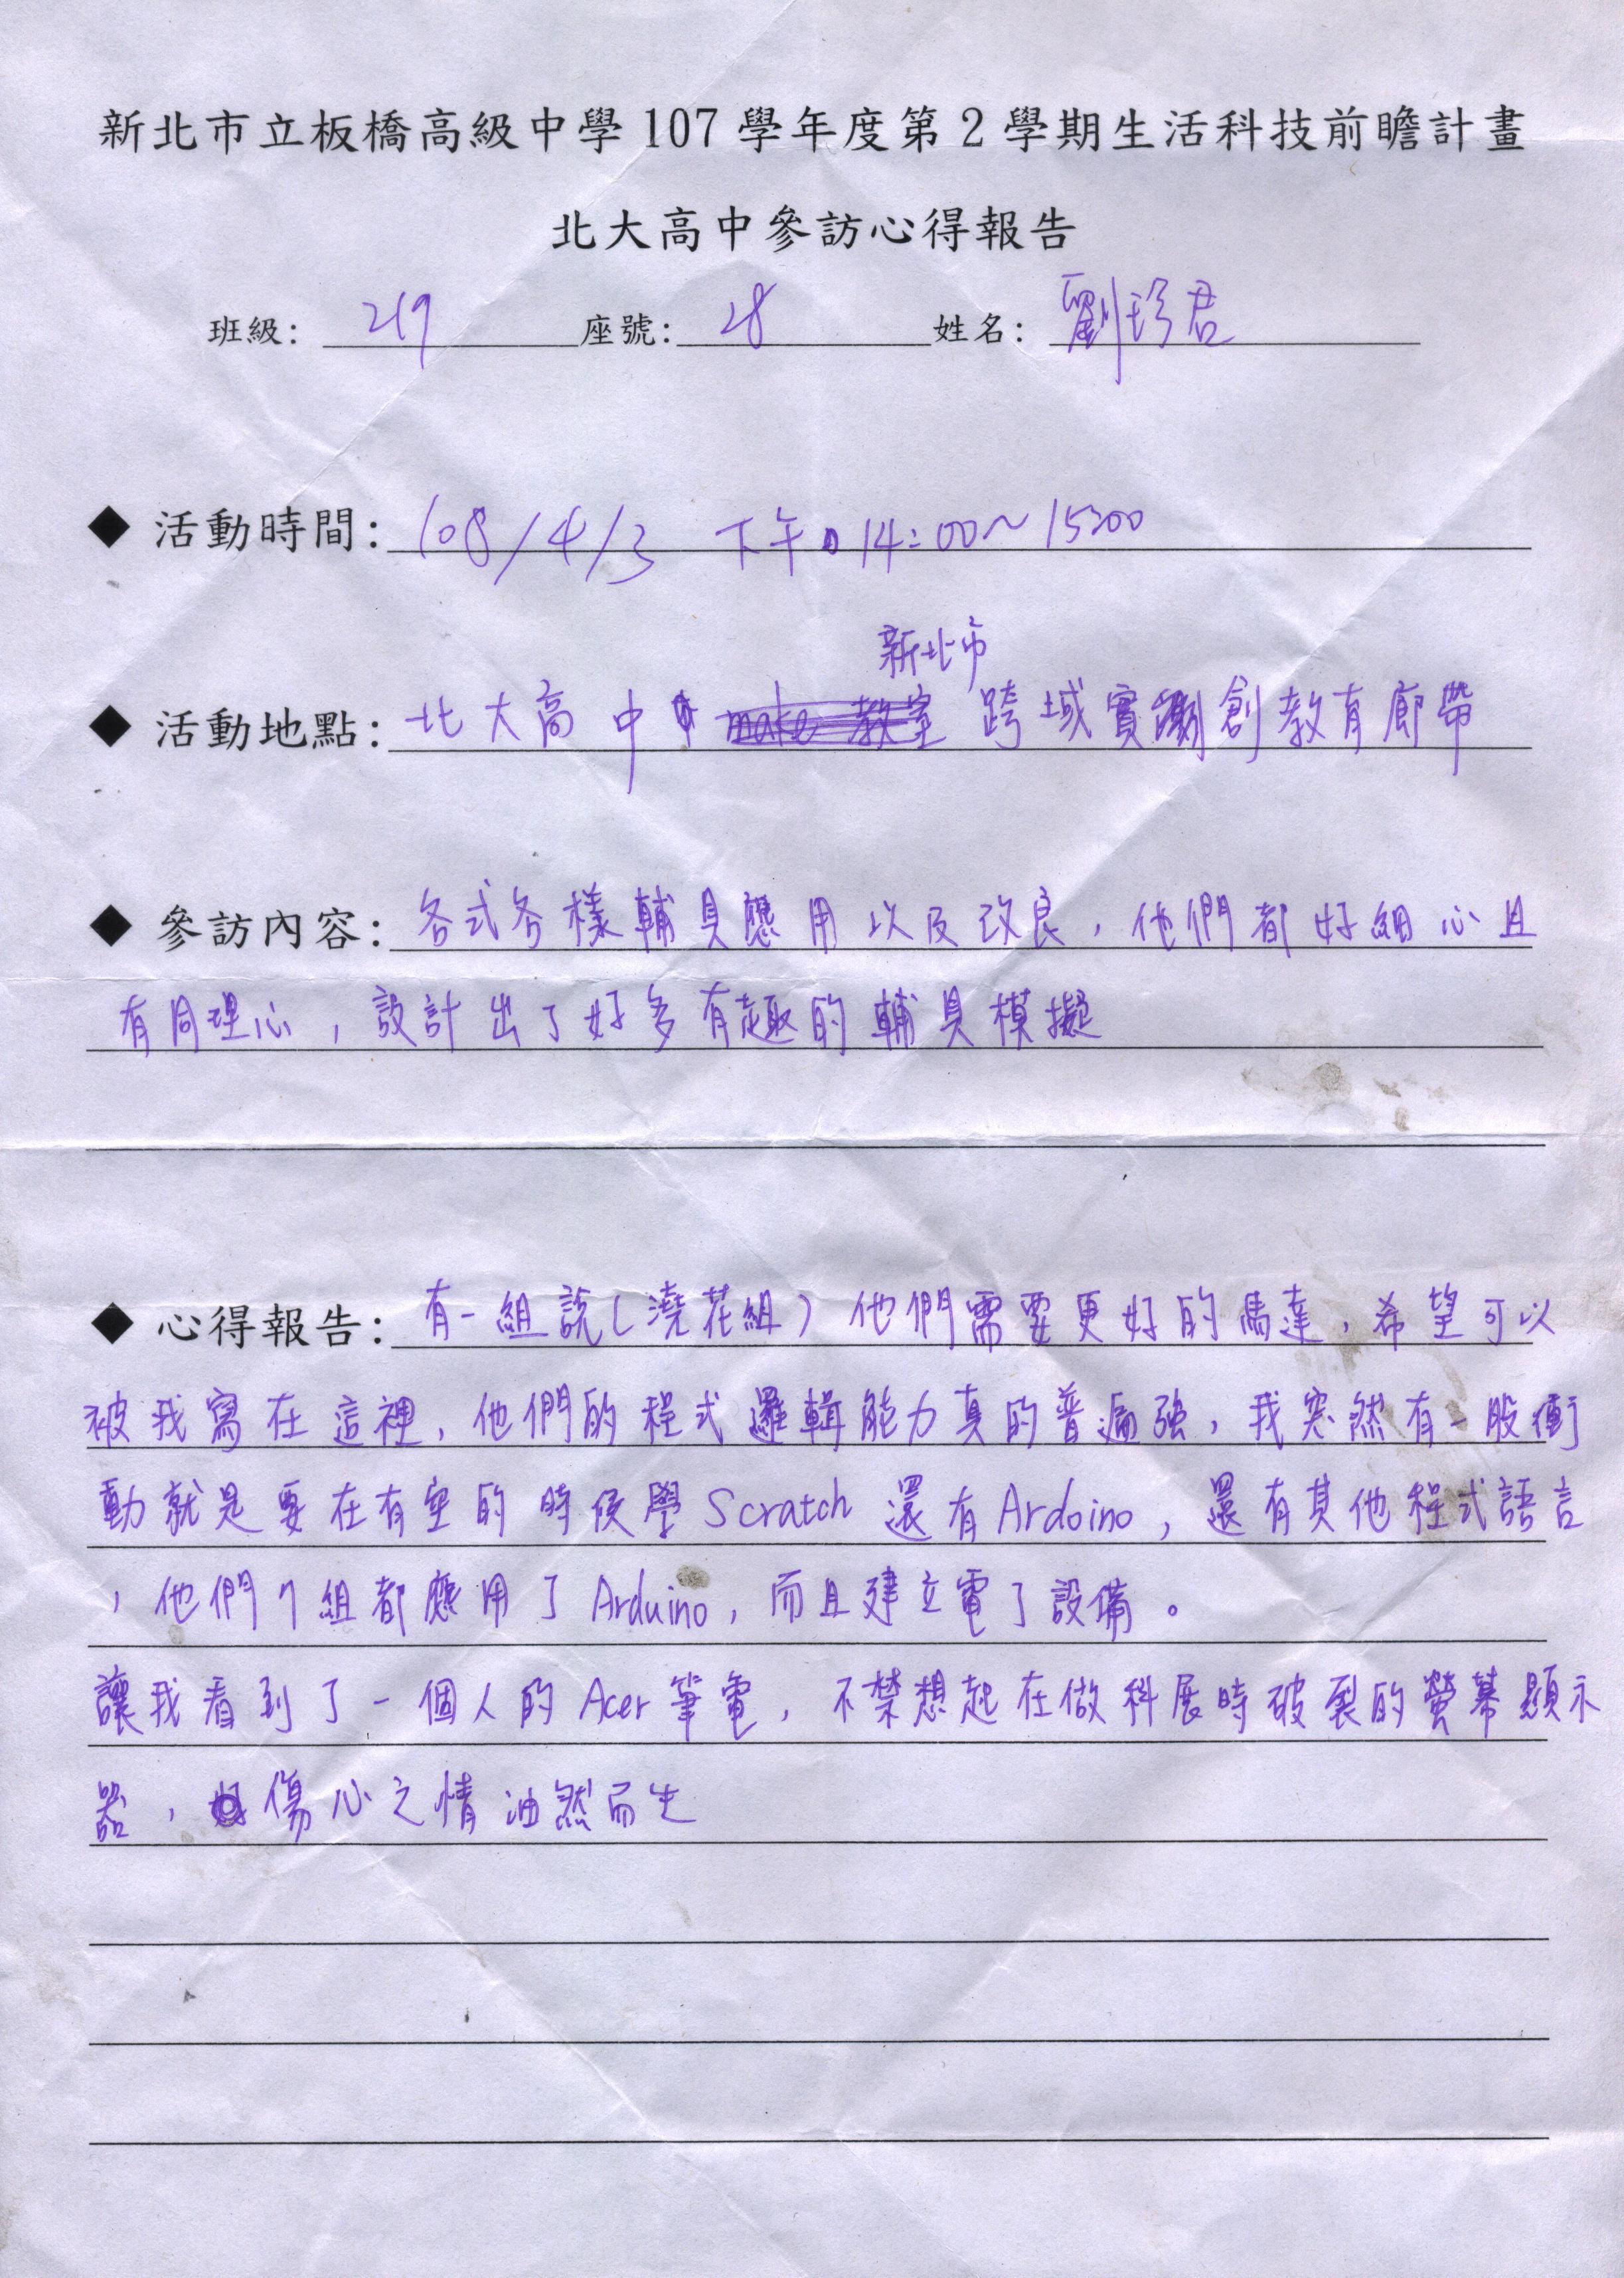 新北市立板橋高級中學107學年度第2學期生活科技前瞻計畫
北大高中參訪心得報告
班級: 219 座號: 28 姓名: 劉珍君
◆ 活動時間: 108/4/3 下午 14:00~15:00
新北市
◆ 活動地點: 北大高中 make 教室 跨域實創教育廊帶
◆ 參訪內容: 各式各樣輔具應用以及改良,他們都好細心且
有同理心,設計出了好多有趣的輔具模擬
◆ 心得報告: 有一組說(澆花組)他們需要更好的馬達,希望可以
被我寫在這裡,他們的程式邏輯能力真的普遍強,我突然有一股衝
動就是要在有空的時候學 Scratch 還有 Ardoino,還有其他程式語言
,他們組都應用了 Arduino,而且建立電了設備。
讓我看到了一個人的 Acer 筆電,不禁想起在做科展時破裂的螢幕顯示
器,傷心之情油然而生